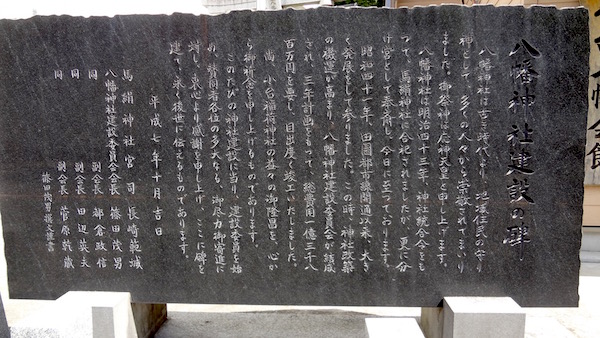 八幡神社建設の碑
八幡神社は古き時代より、地元住民の守り
神として、多くの人々から崇敬されてまいり
ました。御祭神は応神天皇と申し上げます。
八幡神社は明治四十三年、神社統合令をも
って、馬絹神社に合祀されましたが、更に分
け宮として奉斎し、今日に至っております。
昭和四十一年、田園都市線開通以来、大き
く発展をして参りました。この時、神社改築
の機運が高まり、八幡神社建設委員会が結成
され、三年計画をもって、総費用一億三千八
百万円を要し、目出度く竣工いたしました。
尚、小台稲荷神社の益々の御隆昌を、心か
ら御祝念を申し上げるものであります。
このたびの神社建設に当り、建設委員を始
め、賛同者各位の多大なる、御尽力御寄進に
対し、衷心より感謝を申し上げ、ここに碑を
建て、永く後世に伝えるものであります。
平成七年十月吉日
馬絹神社宮司 長崎範城
八幡神社建設委員会会長 篠田茂男
同 副会長 都倉政信
同 副会長 田辺英夫
同 副会長 菅原敦蔵
篠田茂男撰文謹書
八幡会館